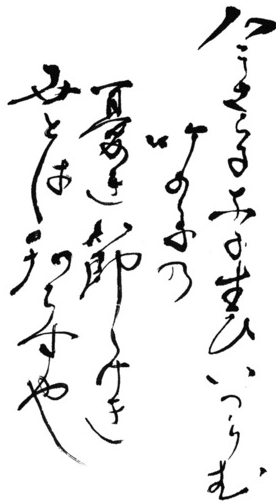 今さらになに生ひいつらむ
竹の子の
憂き節しけき
世とは知らすや